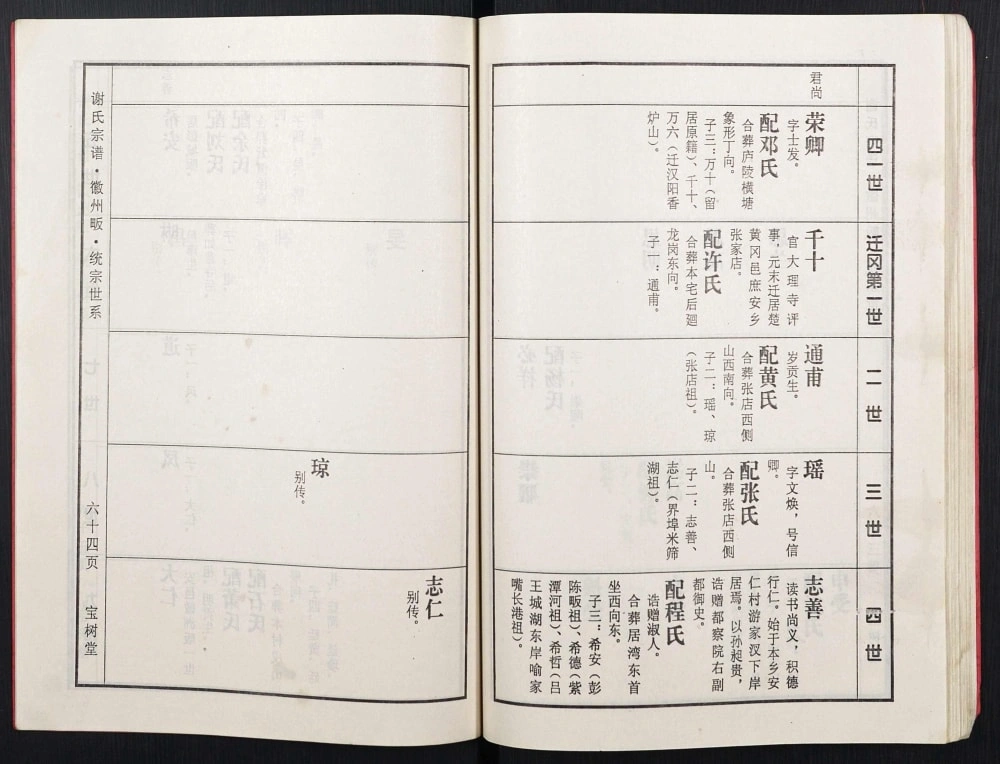 君尚
四一世
荣卿
字士发。
配邓氏
合葬庐陵横塘
象形丁向。
子三：万十（留
居原籍）、千十、
万六（迁汉阳香
炉山）。
迁冈第一世
千十
官大理寺评
事，元末迁居楚
黄冈邑庶安乡
张家店。
配许氏
合葬本宅后廻
龙岗东向。
子一：通甫。
二世
通甫
岁贡生。
配黄氏
合葬张店西侧
山西南向。
子二：瑶、琼
（张店祖）。
三世
瑶
字文焕，号信
卿。
配张氏
合葬张店西侧
山。
子二：志善、
志仁（界埠米筛
湖祖）。
四世
志善
读书尚义，积德
行仁。始于本乡安
仁村游家汊下岸
居焉。以孙昶贵，
诰赠都察院右副
都御史。
配程氏
诰赠淑人。
合葬居湾东首
坐西向东。
子三：希安（彭
陈畈祖）、希德（紫
潭河祖）、希哲（吕
王城湖东岸喻家
嘴长港祖）。
琼
别传。
志仁
别传。
谢氏宗谱·徽州畈·统宗世系
六十四页
宝树堂